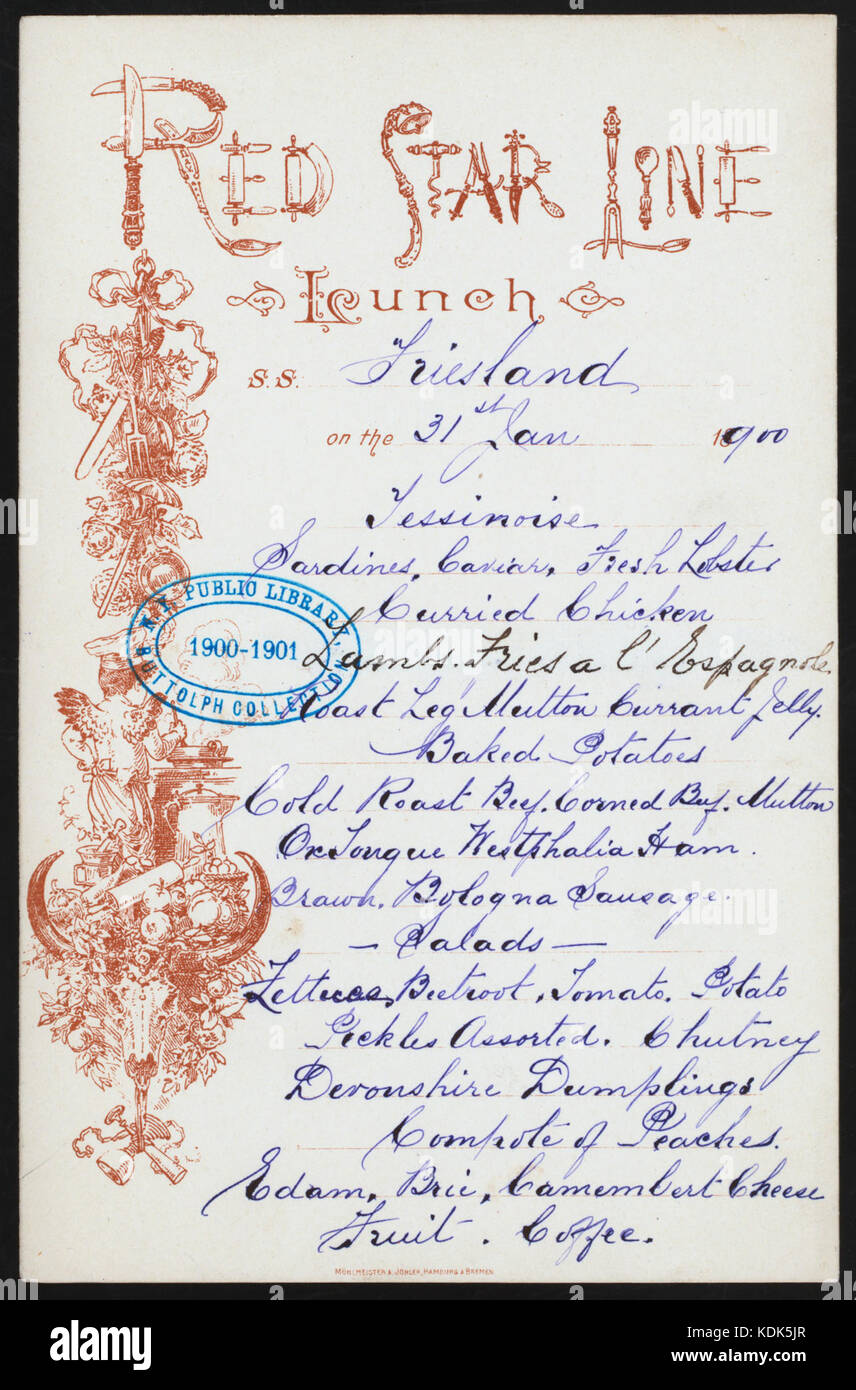 RED STAR LINE
Lunch
S.S. Friesland
on the 31st Jan 1900
Tessinoise
Sardines, Caviar, Fresh Lobster
Curried Chicken
Lambs. Fries a l' Espagnole
Roast Leg Mutton Currant Jelly.
Baked Potatoes
Cold Roast Beef. Corned Beef. Mutton
Ox Tongue Westphalia Ham.
Brawn. Bologna Sausage.
— Salads —
Lettuces, Beetroot, Tomato. Potato
Peckles Assorted. Chutney
Devonshire Dumplings
Compote of Peaches.
Edam, Brie, Camembert Cheese
Fruit. Coffee.
MÜHLMEISTER & JOHLER, HAMBURG & BREMEN
N.Y. PUBLIC LIBRARY,
1900-1901
BUTTOLPH COLLECTION
alamy
alamy
alamy
a
a
a
alamy
Image ID: KDK5JR
www.alamy.com